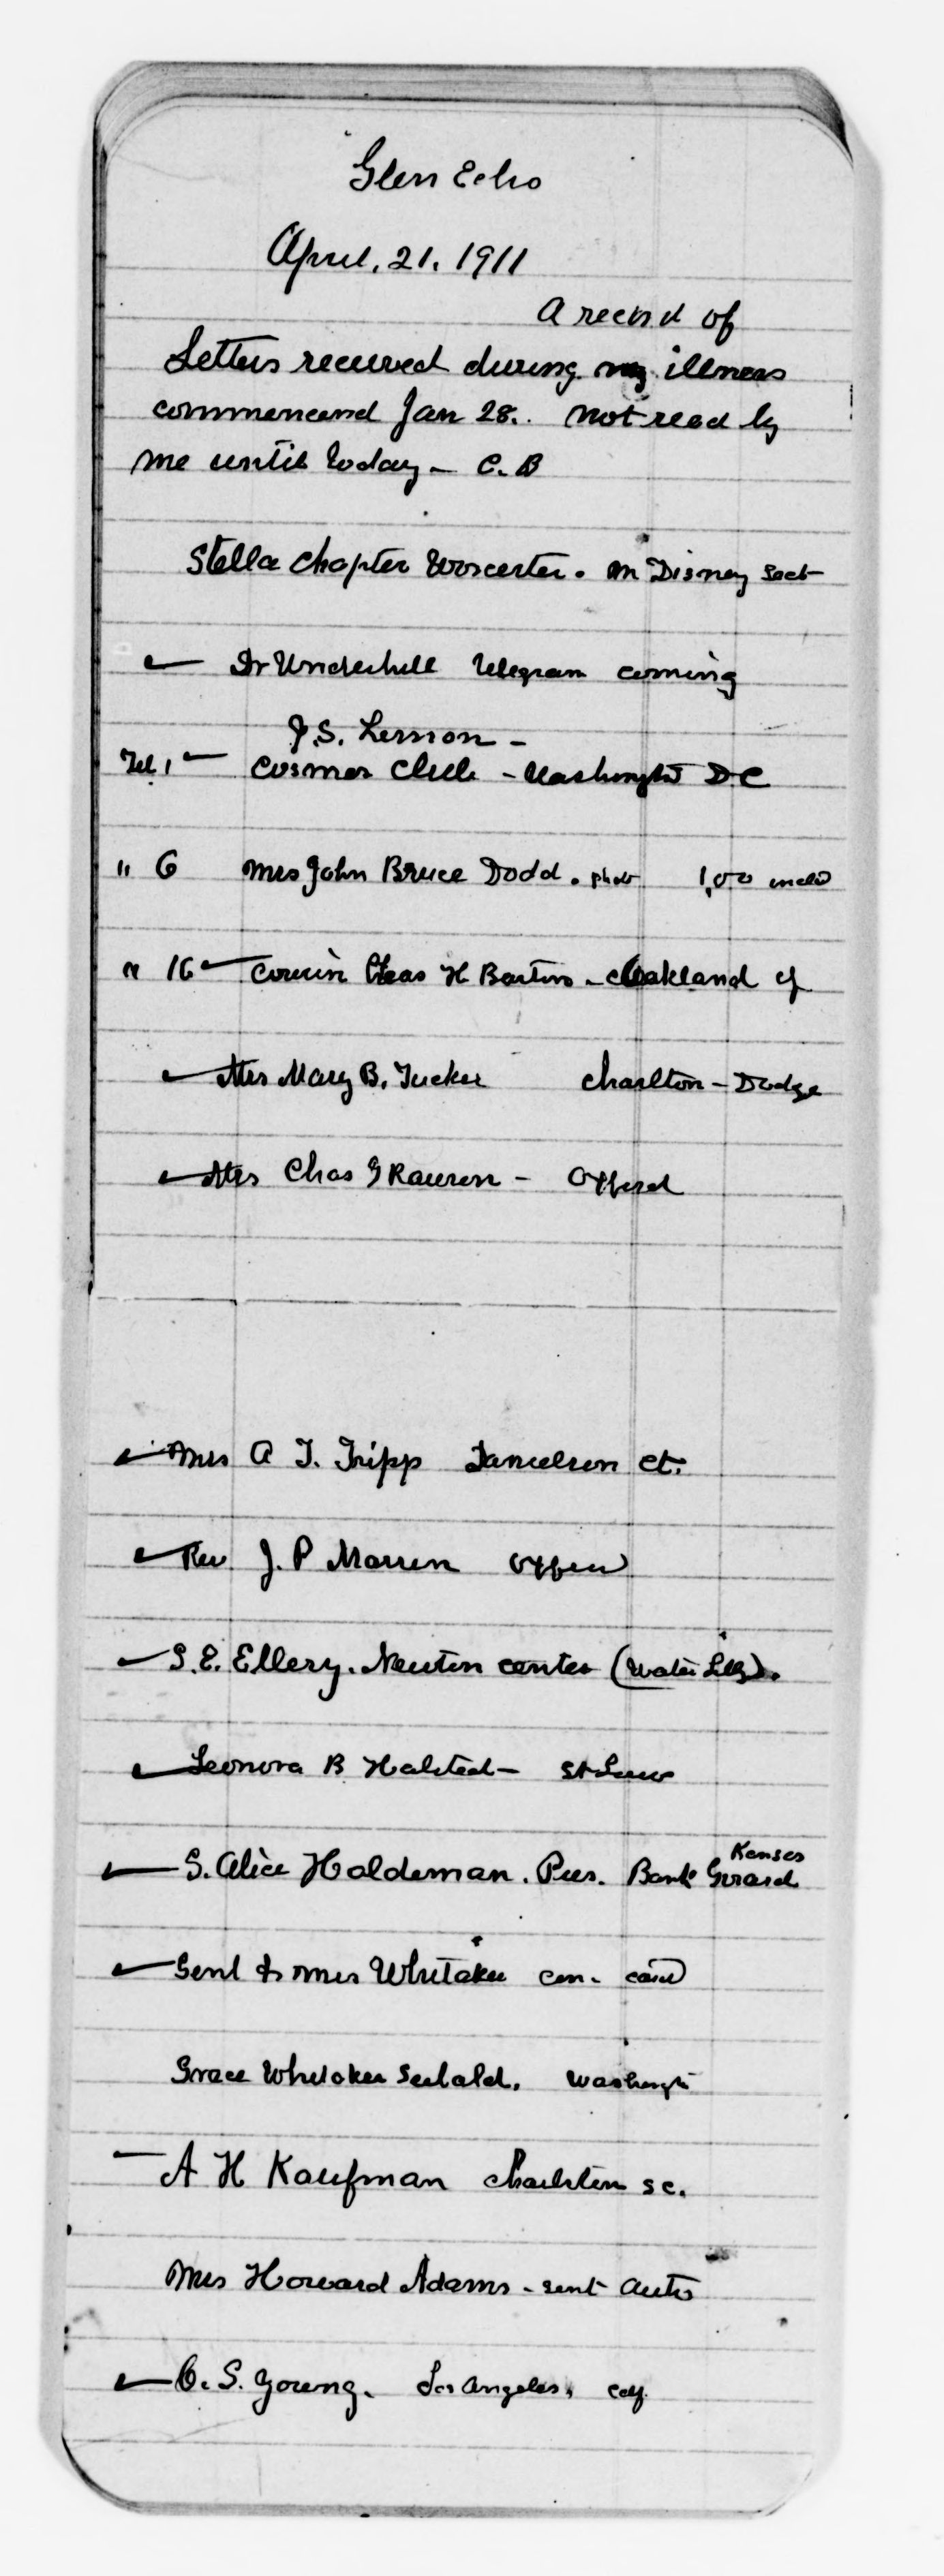 Glen Echo
April. 21. 1911
A record of
Letters received during my illness
commencend Jan 28. not read by
me until today - C. B
Stella Chapter Worcester. M Disney Sect
Dr Underhill telegram coming
J. S. Lemon -
Feb 1 Cosmos Club - Washington D.C
" 6 Mrs John Bruce Dodd. photo 1,00
" 16 Cousin Chas H Barton - Oakland
Mrs Mary B. Tucker Charlton - Dodge
Mrs Chas G - Oxford
Mrs A T. Tripp Danielson Ct.
Rev. J. P Marvin Oxford
S. E. Ellery. Newton Center (Water Lilly).
Leonora B Halsted - St Louis
Kansas
S. Alice Haldeman. Pres. Bank Girard
Genl & Mrs Whitaker card
Grace Whitaker Seibold. Washingt
A H Kaufman Charleston SC.
Mrs Howard Adams - sent auto
C. S. Young. Los Angeles, Caly.